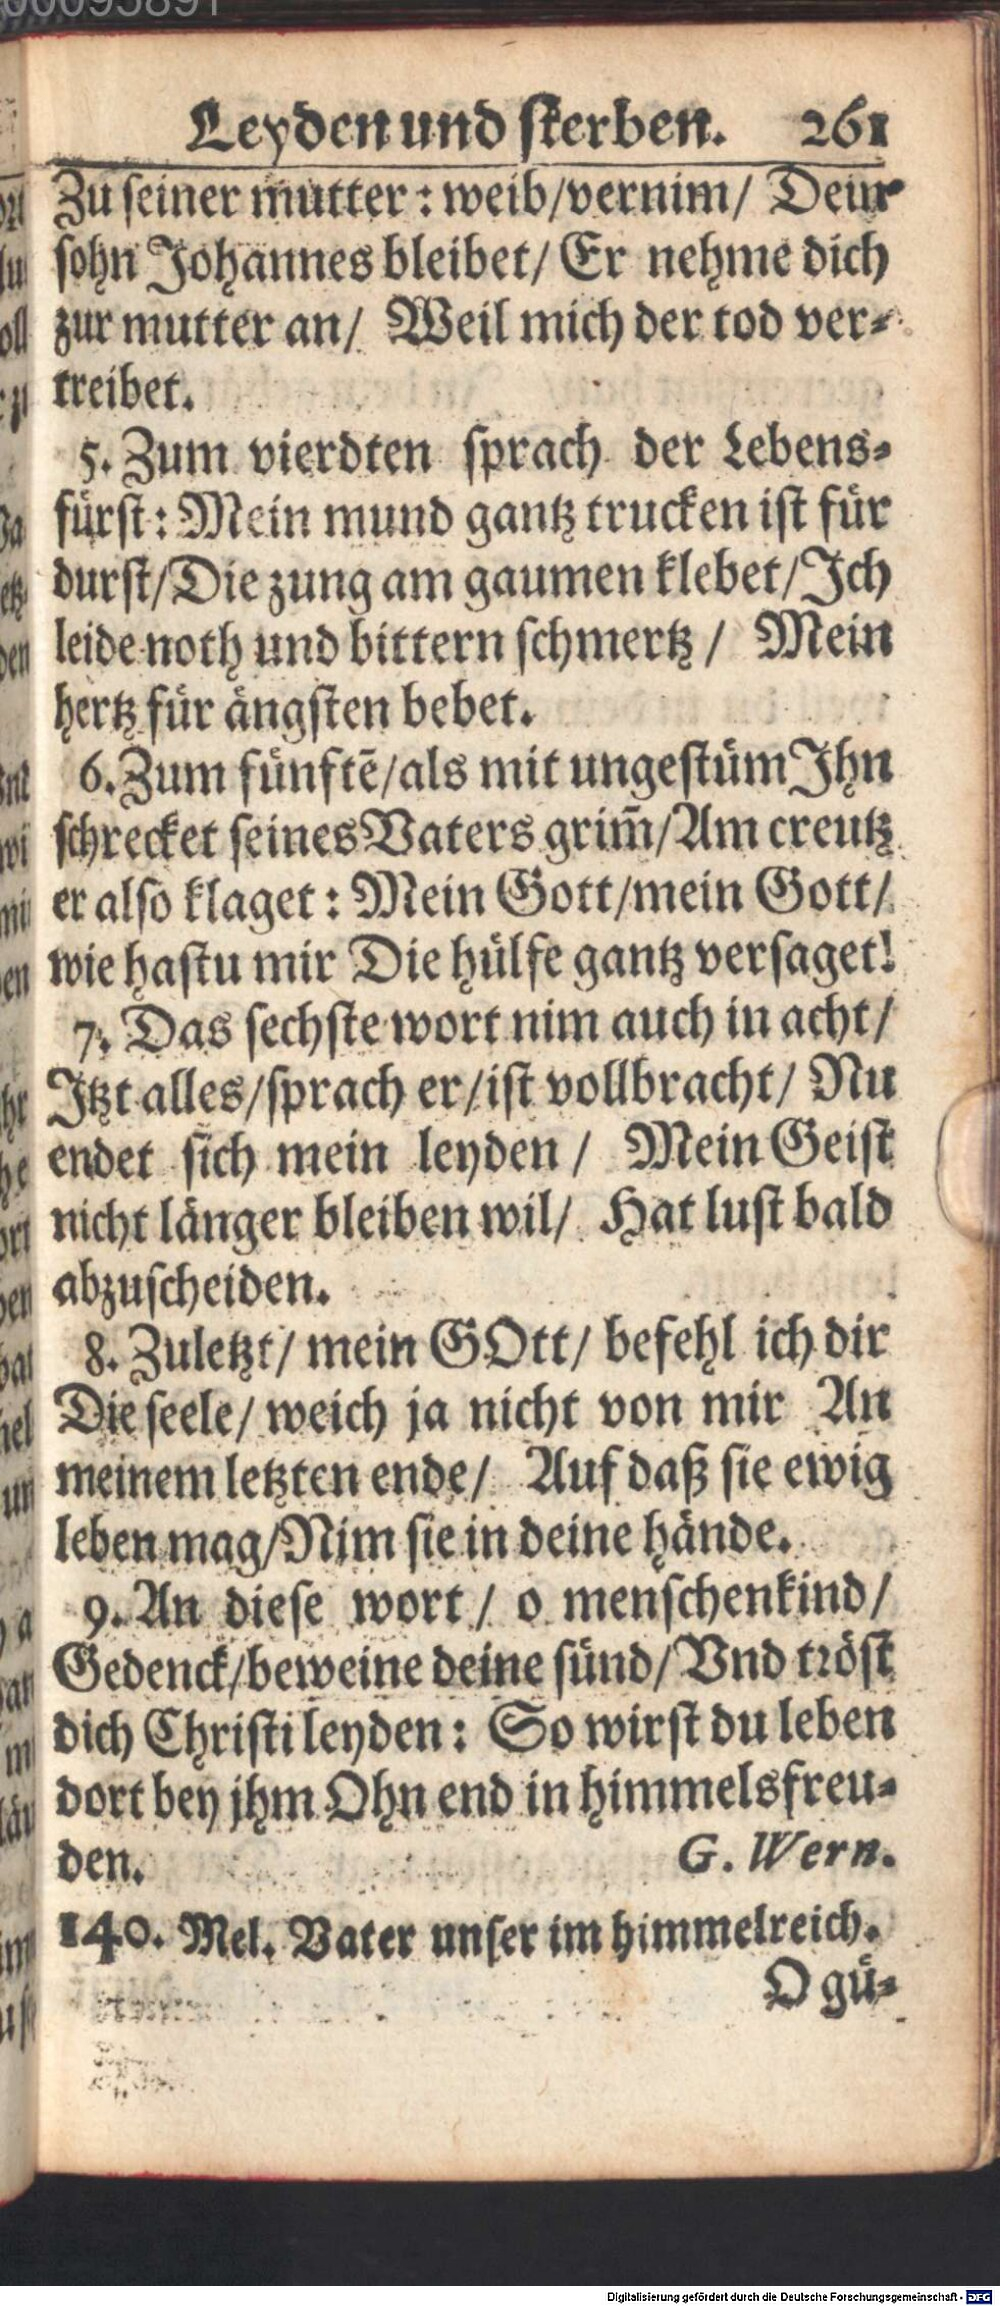 Leyden und sterben. 261
Zu seiner mutter : weib/vernim/ Dein
sohn Johannes bleibet/ Er nehme dich
zur mutter an/ Weil mich der tod ver-
treibet.
5. Zum vierdten sprach der Lebens-
fürst : Mein mund gantz trucken ist für
durst/Die zung am gaumen klebet/Ich
leide noth und bittern schmertz / Mein
hertz für ängsten bebet.
6. Zum fünftẽ/als mit ungestüm Ihn
schrecket seines Vaters grim̃/Am creutz
er also klaget : Mein Gott/mein Gott/
wie hastu mir Die hülfe gantz versaget!
7. Das sechste wort nim auch in acht/
Itzt alles/sprach er/ist vollbracht/ Nu
endet sich mein leyden / Mein Geist
nicht länger bleiben wil/ Hat lust bald
abzuscheiden.
8. Zuletzt/ mein GOtt/ befehl ich dir
Die seele/ weich ja nicht von mir An
meinem letzten ende/ Auf daß sie ewig
leben mag/Nim sie in deine hände.
9. An diese wort / o menschenkind/
Gedenck/beweine deine sünd/ Vnd tröst
dich Christi leyden : So wirst du leben
dort bey jhm Ohn end in himmelsfreu-
den. G. Wern.
140. Mel. Vater unser im himmelreich.
O gü-
Digitalisierung gefördert durch die Deutsche Forschungsgemeinschaft - DFG